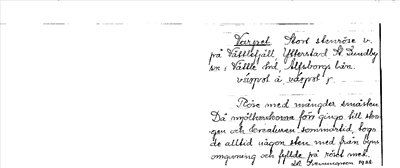 Varpet. Stort stenröse v.
på Vättlefjäll, Ytterstad St. Lundby
sn, Vättle hd, Älfsborgs län.
várpət á, váspət,
Röse med mängder småsten
Då mjölkerskorna förr gingo till sko-
gen och kreaturen sommartid, togo
de alltid någon sten med från byns
omgivning och fyllde på röset med.
1926